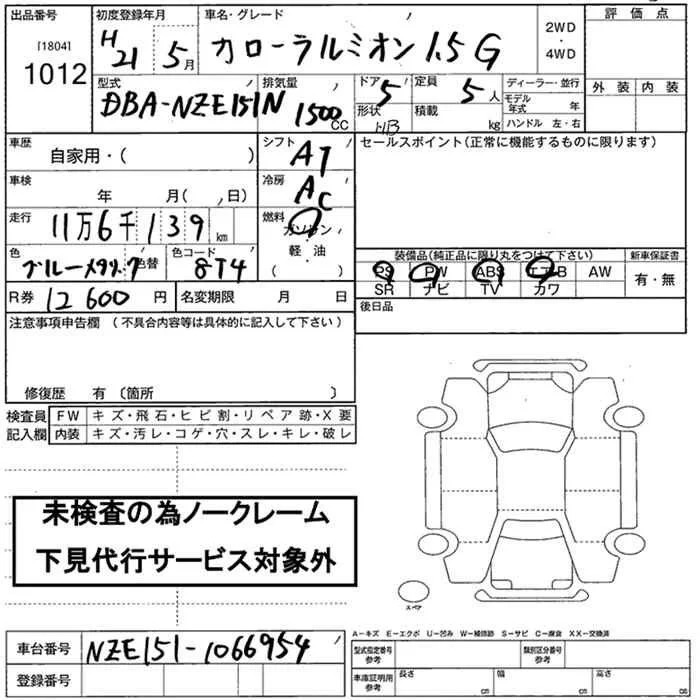 出品番号 初度登録年月 車名・グレード 評価点
[1804] H21 5月 カローラルミオン 1.5 G 2WD・4WD
1012
型式 排気量 ドア 定員 ディーラー・並行 外装 内装
DBA-NZE151N 1500cc 5 5人 モデル年式 年
形状 HB 積載 kg ハンドル 左・右
車歴 自家用・( ) シフト AT セールスポイント(正常に機能するものに限ります)
車検 年 月( , 日) 冷房 AC
走行 11万6千139km 燃料 ガソリン
軽・油
( )
色 ブルーメタリック 色替 色コード 8T4
装備品(純正品に限り丸をつけて下さい) 新車保証書
PS PW ABS エアB AW 有・無
SR ナビ TV カワ
R券 12600円 名変期限 月 日 後日品
注意事項申告欄 (不具合内容等は具体的に記入して下さい)
修復歴 有 (箇所 )
検査員 FW キズ・飛石・ヒビ割・リペア跡・X要
記入欄 内装 キズ・汚レ・コゲ・穴・スレ・キレ・破レ
未検査の為ノークレーム
下見代行サービス対象外
スペア
A-キズ E-エクボ U-凹み W-補修跡 S-サビ C-腐食 XX-交換済
車台番号 NZE151-1066954
登録番号
型式指定番号 参考 類別区分番号 参考
車庫証明用 参考 長さ cm 幅 cm 高さ cm